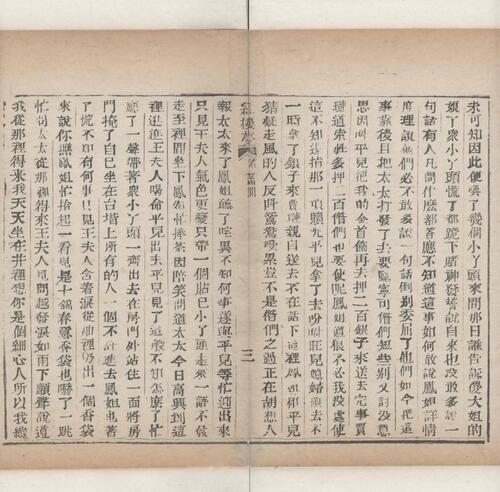 來可知因此便喚了幾個小丫頭來問那日誰告訴傻大姐的
娘丫衆小丫頭慌了都跪下賭神發誓說自來也沒敢多說一
句話有人凡問什麽都答應不知道這事如何敢說鳳姐詳情
度理說他們必不敢多說一句話倒别委屈了他們如今把這
事靠後且把太太打發了去要緊寧可偺們短些别又討没意
思因叫平兒把我的金首飾再去押二百銀子來送去完事賈
璉道索性多押二百偺們也要使呢鳳姐道狠不必我没處使
這不知還指那一項贖呢平兒拿了去吩咐旺兒媳婦領去不
一時拿了銀子來賈璉親自送去不在話下這裡鳳姐和平兒
猜疑走風的人反叫鴛鴦受累豈不是偺們之過正在胡想人
紅樓夢 第 囘 三
報太太來了鳳姐聽了咤異不知何事遂與平兒等忙迎出來
只見王夫人氣色更變只帶一個貼己小丫頭走來一語不發
走至裡間坐下鳳姐忙捧茶因陪笑問道太太今日高興到這
裡逛逛王夫人喝命平兒出去平兒見了這般不知怎麽了忙
應了一聲帶著衆小丫頭一齊出去在房門外站住一面將房
門掩了自己坐在台堦上所有的人一個不許進去鳳姐也著
了慌不知有何事只見王夫人含着淚從袖裡扔出一個香袋
來說你瞧鳳姐忙拾起一看見是十錦春意香袋也嚇了一跳
忙問太太從那裡得來王夫人見問越發淚如雨下顫聲說道
我從那裡得來我天天坐在井裡想你是個細心人所以我纔